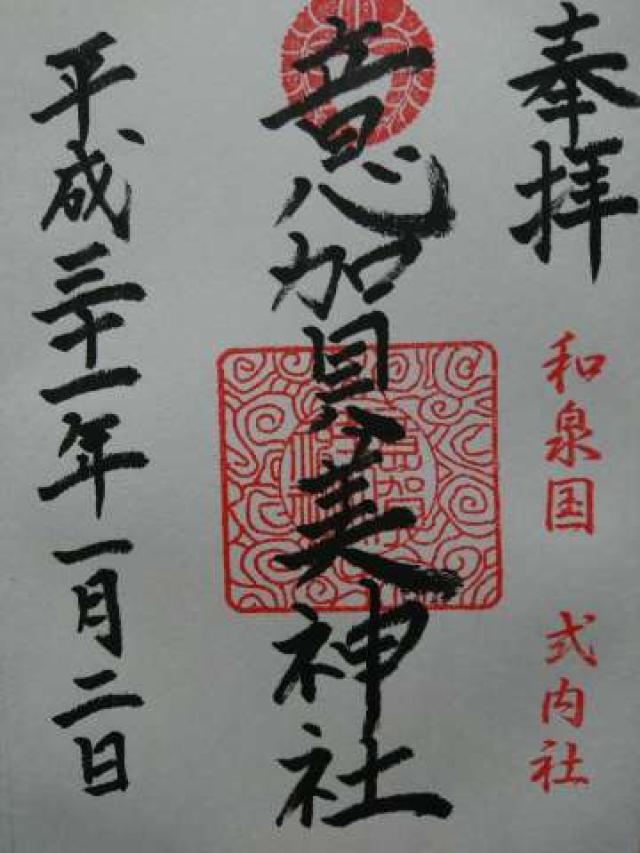 奉拝
和泉国 式内社
意加賀美神社
平成三十一年一月二日